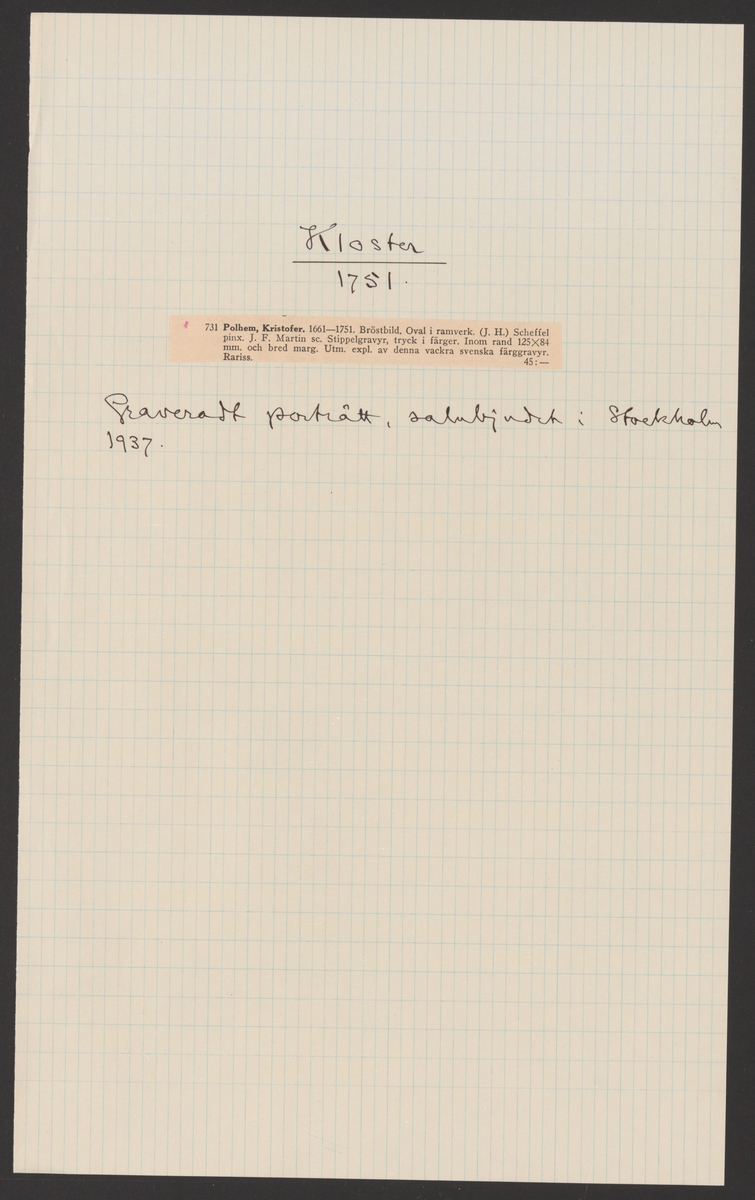 Kloster
1751.
731 Polhem, Kristofer. 1661—1751. Bröstbild, Oval i ramverk. (J. H.) Scheffel
pinx. J. F. Martin sc. Stippelgravyr, tryck i färger. Inom rand 125×84
mm. och bred marg. Utm. expl. av denna vackra svenska färggravyr.
Rariss. 45:—
Graveradt porträtt, salubjudet i Stockholm
1937.